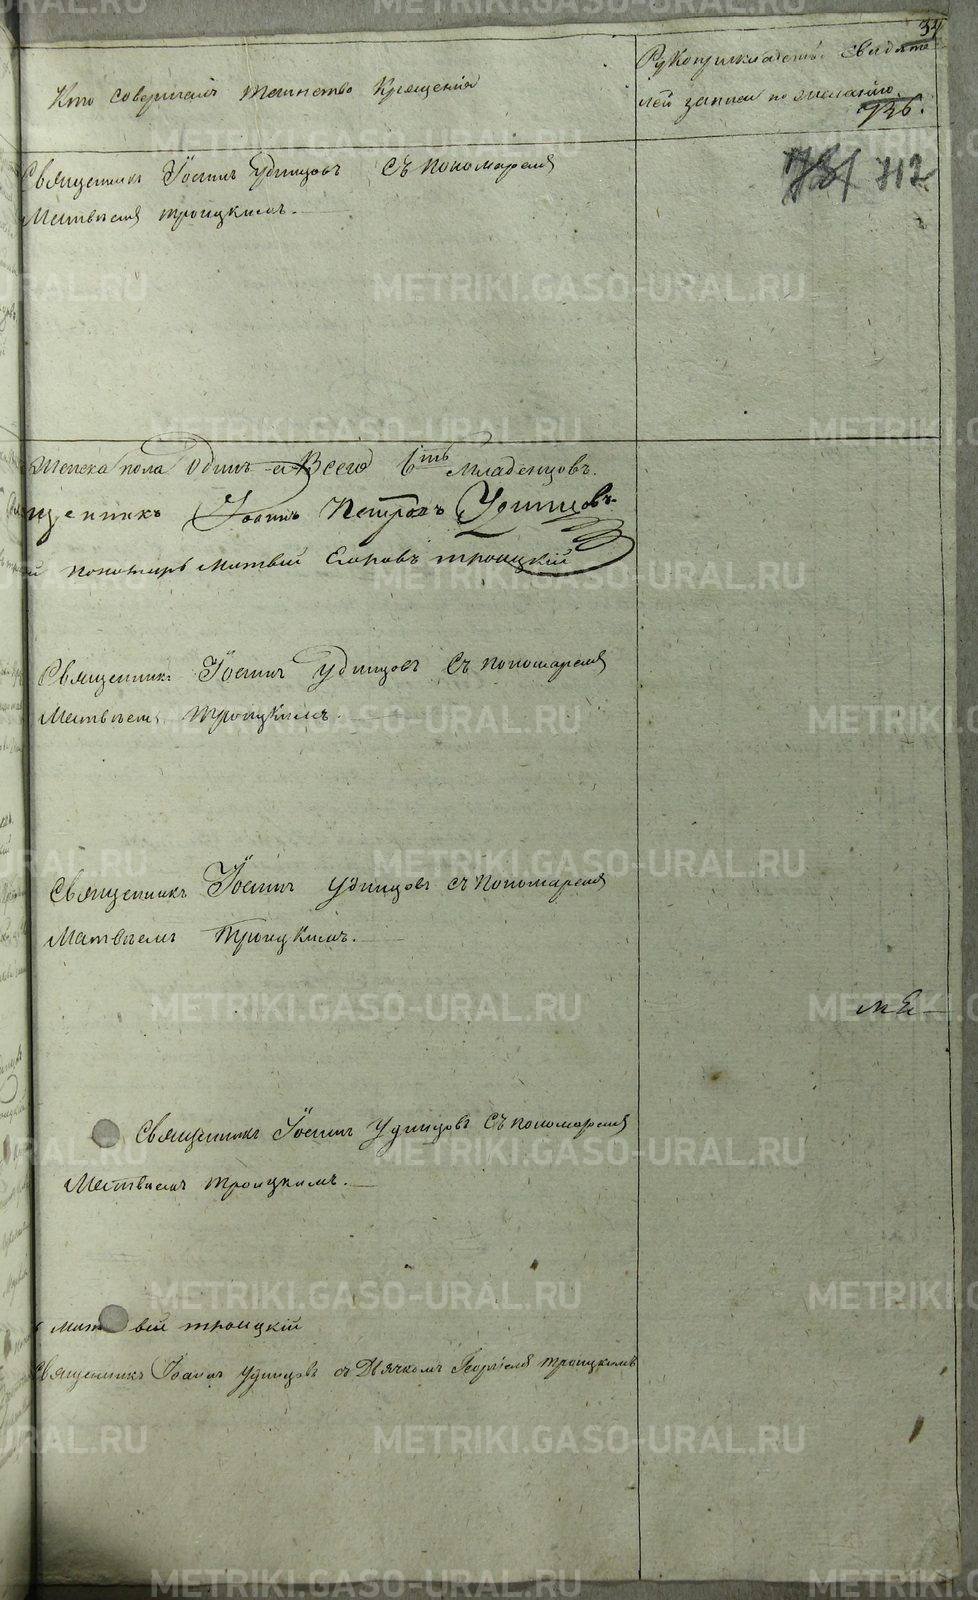 34
Кто совершалъ таинство крещенія
Рукоприкладство свидѣте
лей записи по желанію.
736.
712
Священникъ Іоаннъ Удинцовъ съ пономаремъ
Матвѣемъ Троицкимъ.
женска пола Одинъ а Всего 6ть Младенцовъ.
щенникъ Іоаннъ Петровъ Удинцовъ
й пономарь Матвѣй Егоровъ Троицкій
Священникъ Іоаннъ Удинцовъ Съ пономаремъ
Матвѣемъ Троицкимъ.
Священникъ Іоаннъ Удинцовъ съ пономаремъ
Матвѣемъ Троицкимъ.
Священникъ Іоаннъ Удинцовъ Съ пономаремъ
Матвѣемъ Троицкимъ.
Матвѣй Троицкій
Священникъ Іоаннъ Удинцовъ съ Дьячкомъ Георгіемъ Троицкимъ
METRIKI.GASO-URAL.RU